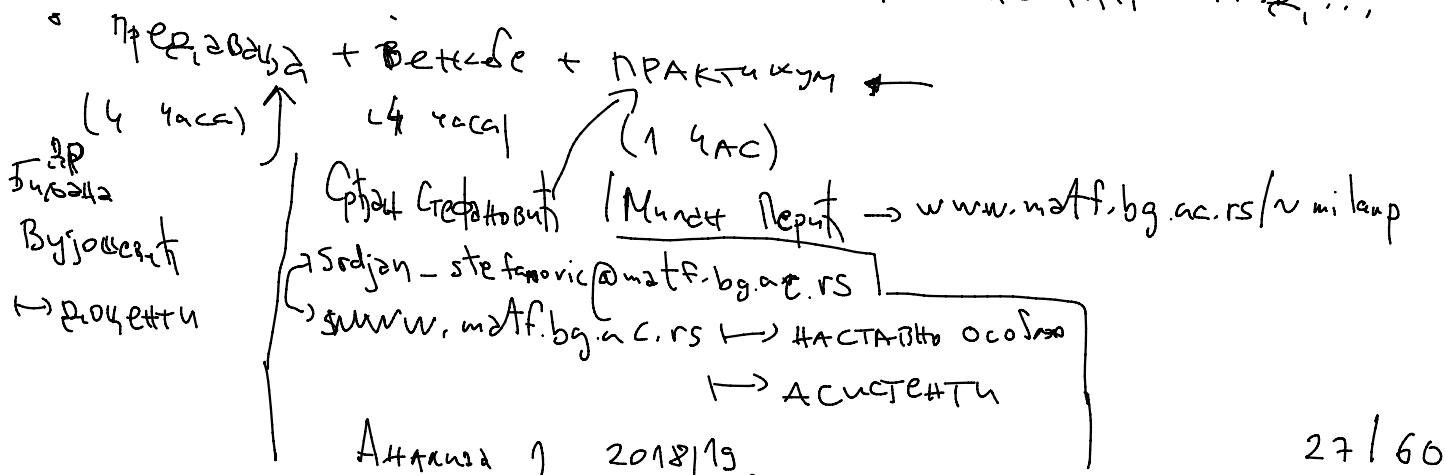 Предавања + Вежбе + ПРАКТИКУМ ←
(4 часа) (4 часа) (1 ЧАС)
др Биљана Вујошевић
↦ доценти
Срђан Стефановић / Милан Перић → www.matf.bg.ac.rs/~milanp
→ srdjan_stefanovic@matf.bg.ac.rs
→ www.matf.bg.ac.rs ↦ НАСТАВНО ОСОБЉЕ
↦ АСИСТЕНТИ
Анализа 1 2018/19
27/60